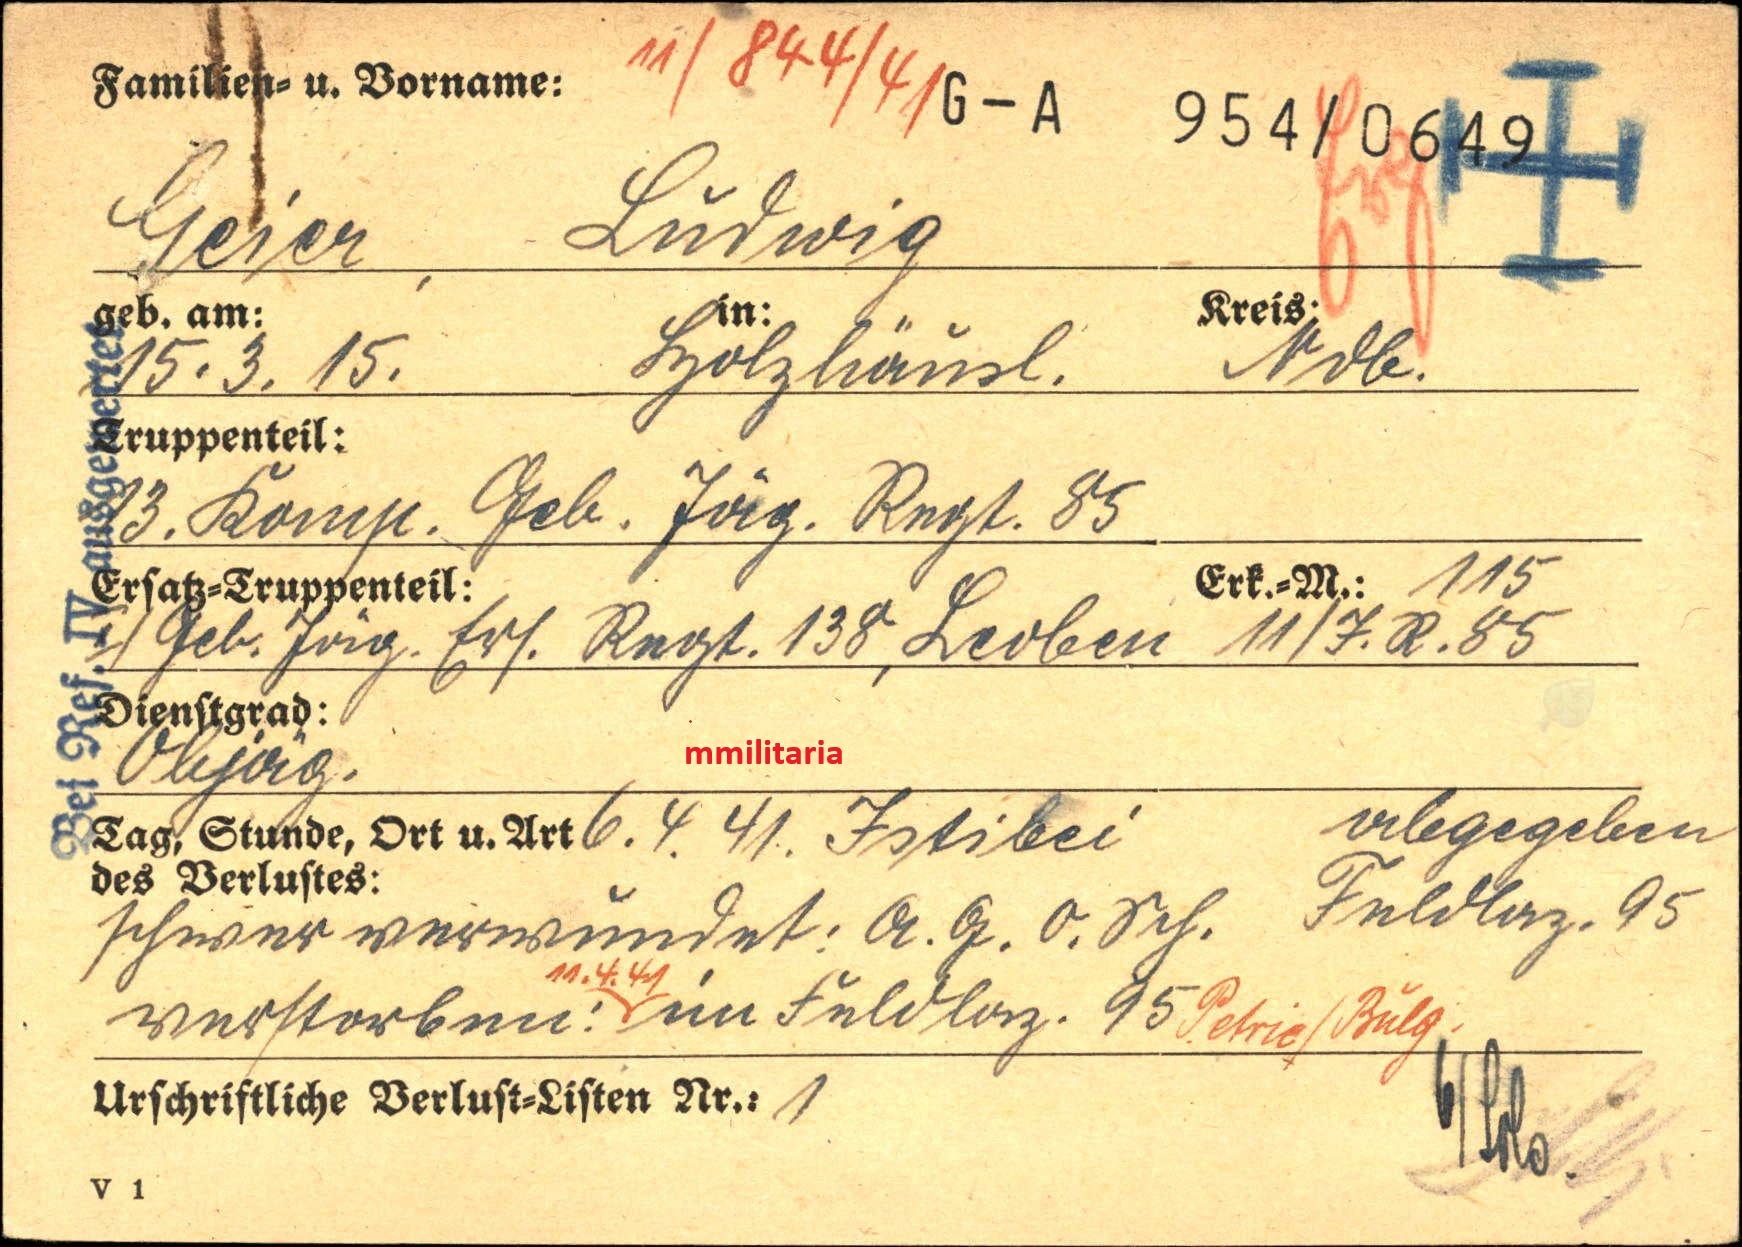 11/844/41
G-A 954/0649
Familien- u. Vorname:
Geier, Ludwig
geb. am: in: Kreis:
15.3.15. Holzhäusl. Ndb.
Truppenteil:
13. Komp. Geb. Jäg. Regt. 85
Ersatz-Truppenteil: Erk.-M.: 115
Geb. Jäg. Ers. Regt. 138, Leoben 11/J.R.85
Dienstgrad:
Objäg.
mmilitaria
Tag, Stunde, Ort u. Art 6.4.41. Istibei abgegeben
des Verlustes: Feldlaz. 95
schwer verwundet: A.G.O.Sch.
11.4.41
verstorben: im Feldlaz. 95 Petric/Bulg.
Urschriftliche Verlust-Listen Nr.: 1
V 1
Bei Ref. IV ausgewertet